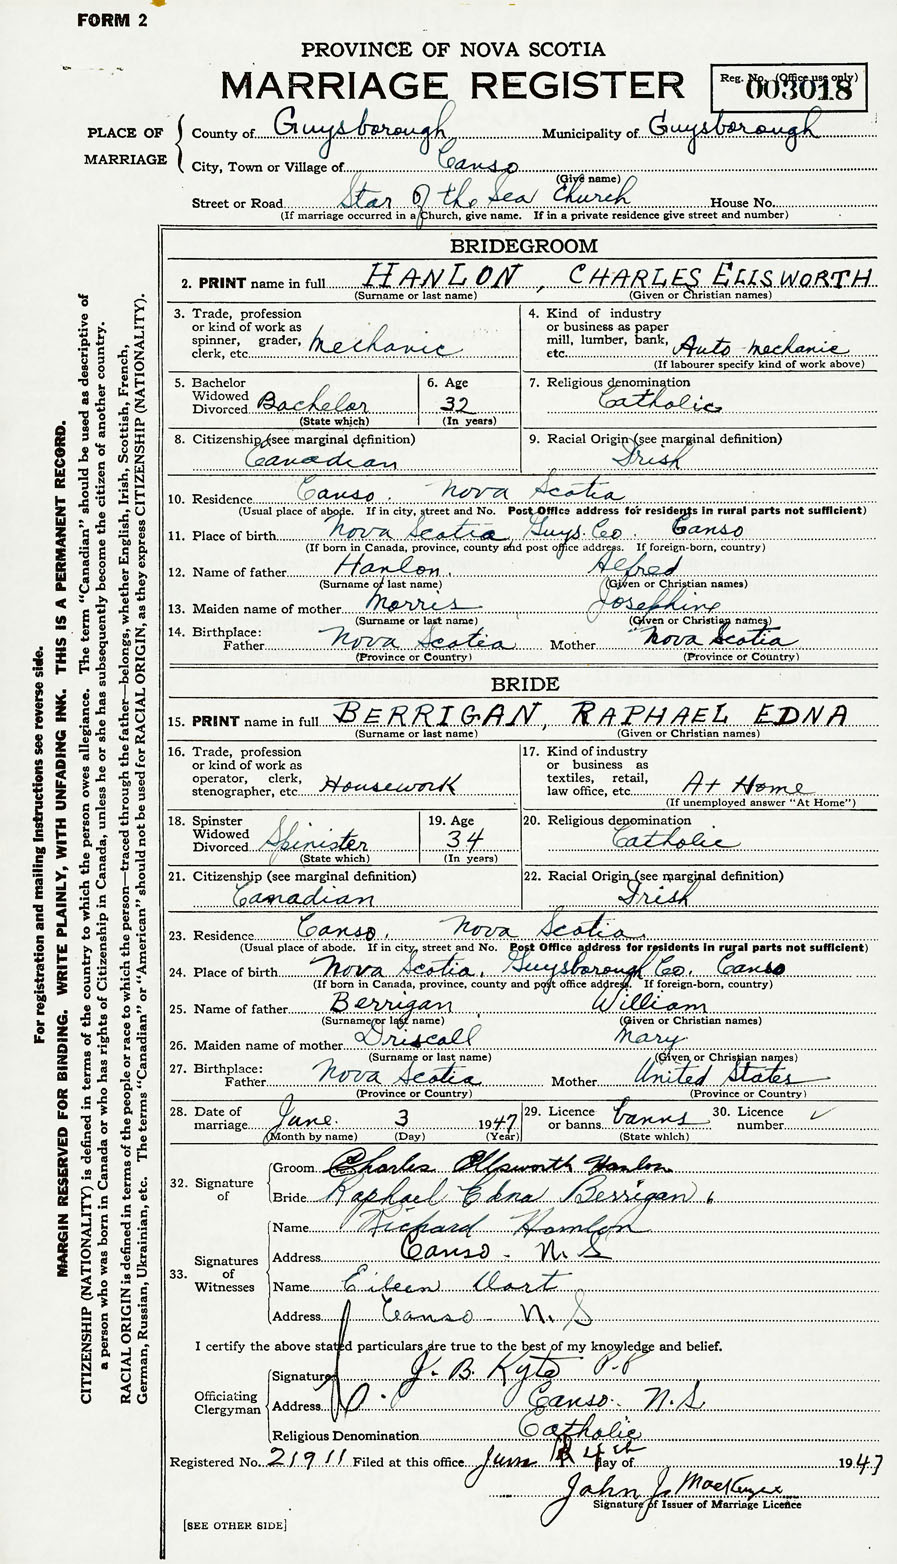 FORM 2
PROVINCE OF NOVA SCOTIA
MARRIAGE REGISTER
Reg. No. (Office use only)
003018
PLACE OF MARRIAGE
County of Guysborough Municipality of Guysborough
City, Town or Village of Canso
(Give name)
Street or Road Star of the Sea Church House No.
(If marriage occurred in a Church, give name. If in a private residence give street and number)
BRIDEGROOM
2. PRINT name in full HANLON, CHARLES ELLSWORTH
(Surname or last name) (Given or Christian names)
3. Trade, profession or kind of work as spinner, grader, clerk, etc. Mechanic
4. Kind of industry or business as paper mill, lumber, bank, etc. Auto mechanic
(If labourer specify kind of work above)
5. Bachelor Widowed Divorced Bachelor
(State which)
6. Age 32
(In years)
7. Religious denomination Catholic
8. Citizenship (see marginal definition) Canadian
9. Racial Origin (see marginal definition) Irish
10. Residence Canso. Nova Scotia
(Usual place of abode. If in city, street and No. Post Office address for residents in rural parts not sufficient)
11. Place of birth Nova Scotia, Guys. Co. Canso
(If born in Canada, province, county and post office address. If foreign-born, country)
12. Name of father Hanlon. Alfred
(Surname of last name) (Given or Christian names)
13. Maiden name of mother Morris Josephine
(Surname or last name) (Given or Christian names)
14. Birthplace: Father Nova Scotia Mother Nova Scotia
(Province or Country) (Province or Country)
BRIDE
15. PRINT name in full BERRIGAN, RAPHAEL EDNA
(Surname or last name) (Given or Christian names)
16. Trade, profession or kind of work as operator, clerk, stenographer, etc Housework
17. Kind of industry or business as textiles, retail, law office, etc. At Home
(If unemployed answer "At Home")
18. Spinster Widowed Divorced Spinister
(State which)
19. Age 34
(In years)
20. Religious denomination Catholic
21. Citizenship (see marginal definition) Canadian
22. Racial Origin (see marginal definition) Irish
23. Residence Canso, Nova Scotia,
(Usual place of abode. If in city, street and No. Post Office address for residents in rural parts not sufficient)
24. Place of birth Nova Scotia, Guysborough Co. Canso
(If born in Canada, province, county and post office address. If foreign-born, country)
25. Name of father Berrigan William
(Surname or last name) (Given or Christian names)
26. Maiden name of mother Driscoll Mary
(Surname or last name) (Given or Christian names)
27. Birthplace: Father Nova Scotia Mother United States
(Province or Country) (Province or Country)
28. Date of marriage June. 3 1947
(Month by name) (Day) (Year)
29. Licence or banns banns
(State which)
30. Licence number
32. Signature of
Groom Charles Ellsworth Hanlon
Bride Raphael Edna Berrigan
33. Signatures of Witnesses
Name Richard Hanlon
Address Canso - N.S
Name Eileen Dort
Address Canso - N.S
I certify the above stated particulars are true to the best of my knowledge and belief.
Officiating Clergyman
Signature J. B. Kyte P.P
Address Canso. N.S
Religious Denomination Catholic
Registered No. 21911 Filed at this office June 4th day of 1947
John J. MacKenzie
Signature of Issuer of Marriage Licence
[SEE OTHER SIDE]
For registration and mailing instructions see reverse side.
MARGIN RESERVED FOR BINDING. WRITE PLAINLY, WITH UNFADING INK. THIS IS A PERMANENT RECORD.
CITIZENSHIP (NATIONALITY) is defined in terms of the country to which the person owes allegiance. The term "Canadian" should be used as descriptive of
a person who was born in Canada or who has rights of Citizenship in Canada, unless he or she has subsequently become the citizen of another country.
RACIAL ORIGIN is defined in terms of the people or race to which the person—traced through the father—belongs, whether English, Irish, Scottish, French,
German, Russian, Ukrainian, etc. The terms "Canadian" or "American" should not be used for RACIAL ORIGIN, as they express CITIZENSHIP (NATIONALITY).